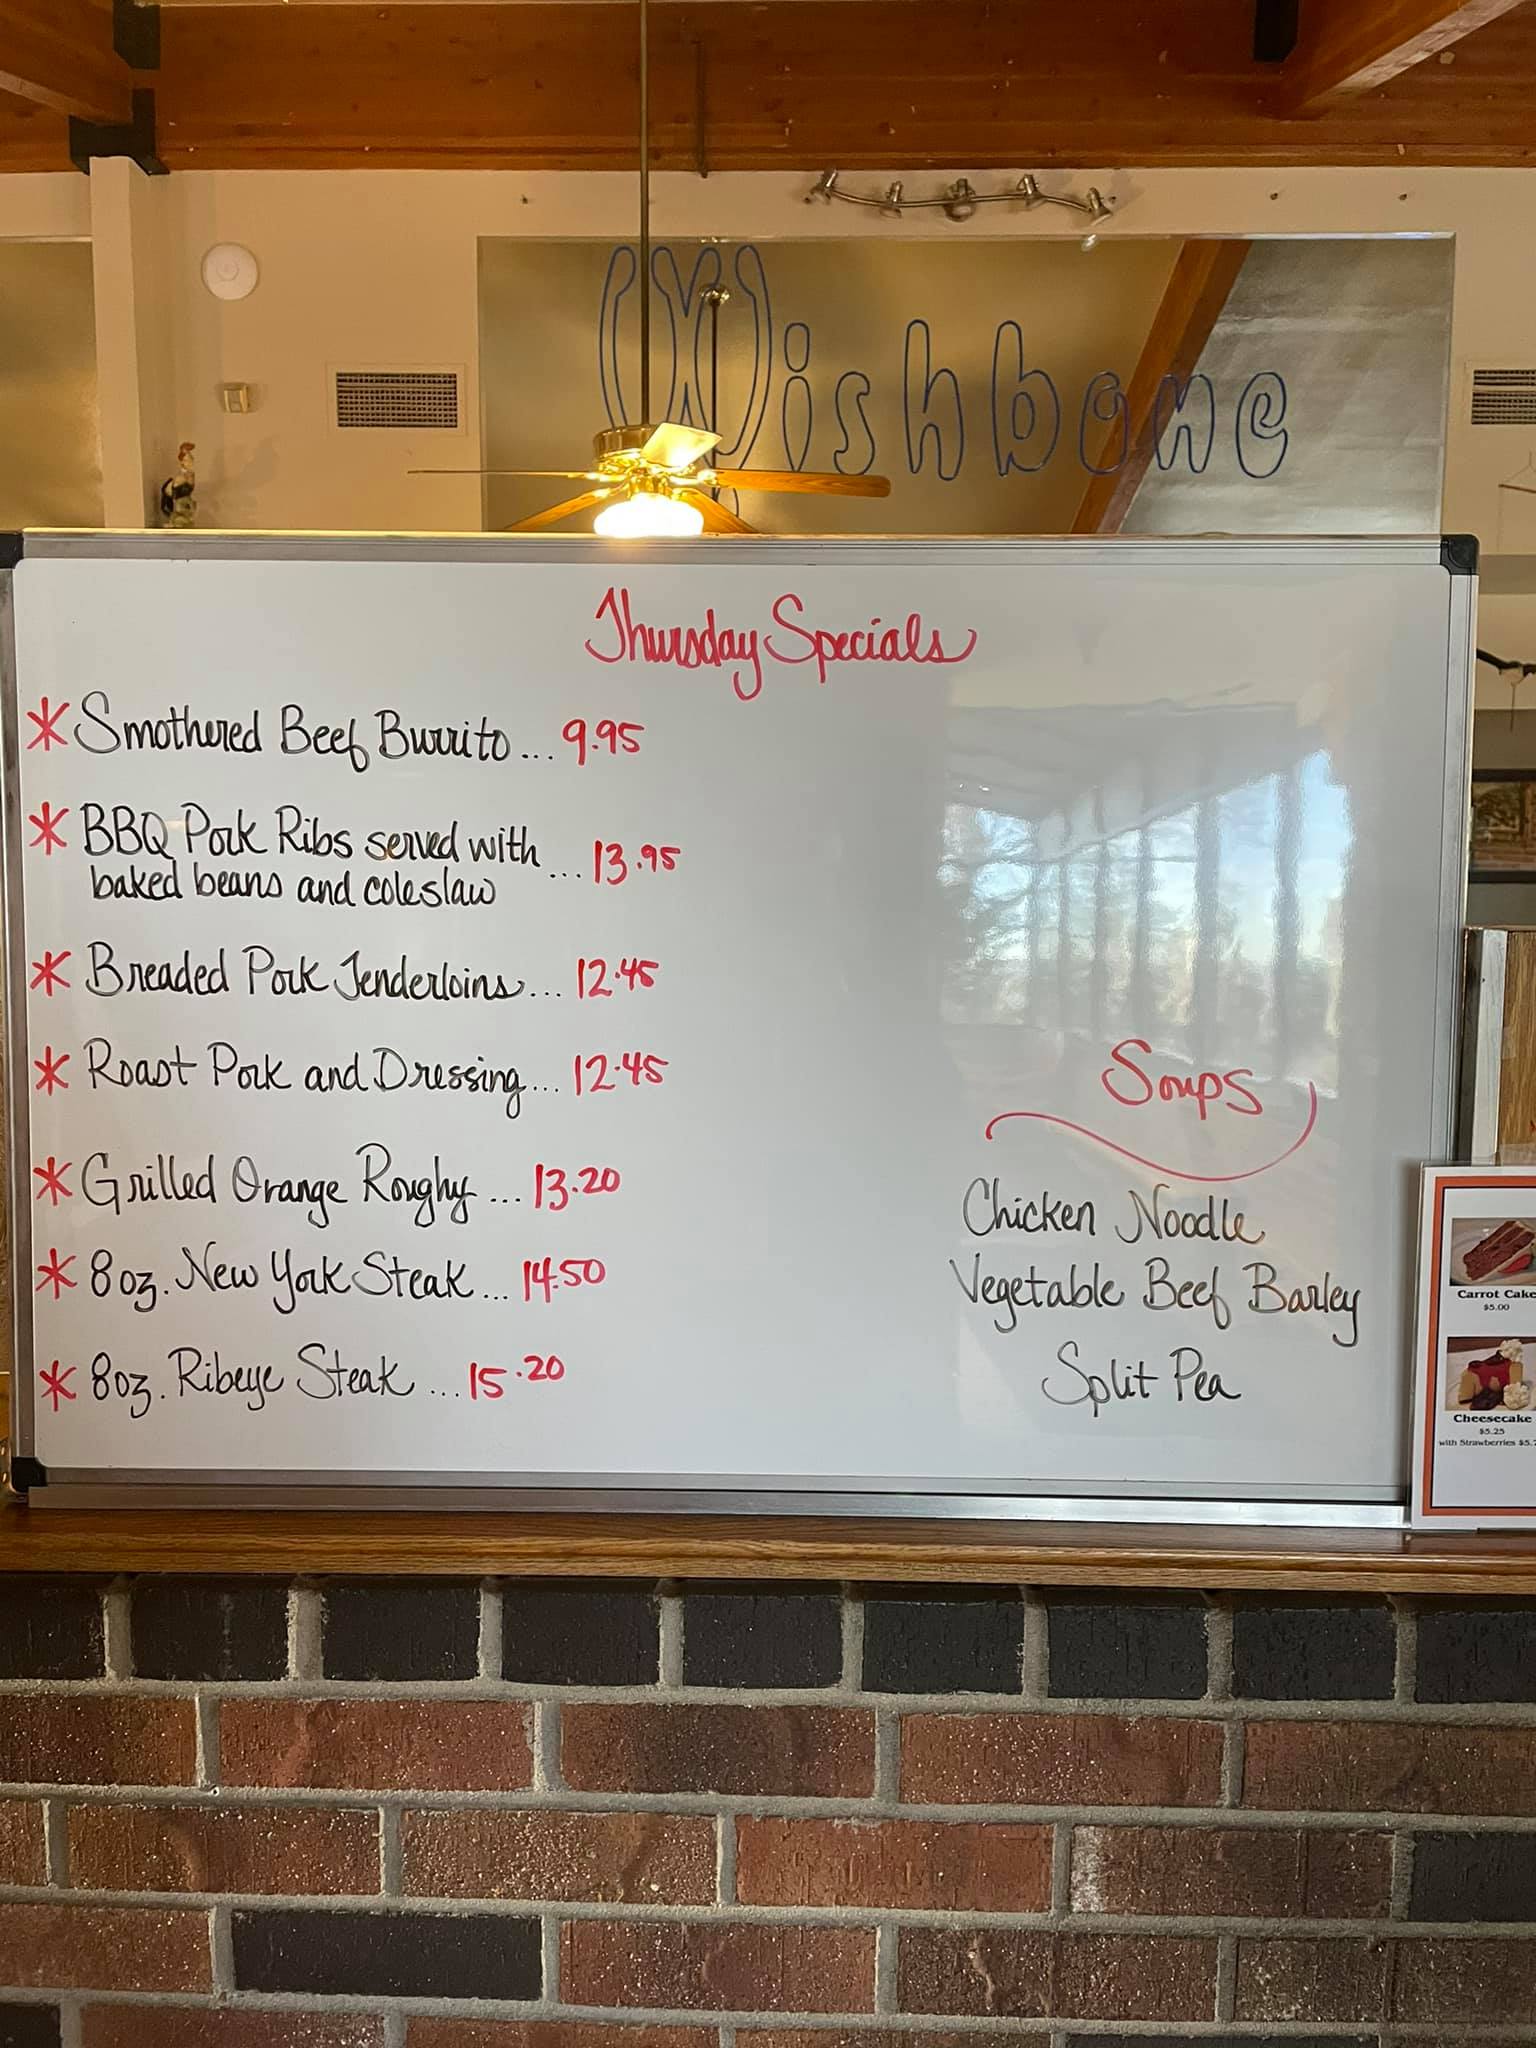 Wishbone
Thursday Specials
* Smothered Beef Burrito ... 9.95
* BBQ Pork Ribs served with
baked beans and coleslaw ... 13.95
* Breaded Pork Tenderloins... 12.45
* Roast Pork and Dressing... 12.45
* Grilled Orange Roughy ... 13.20
* 8oz. New York Steak ... 14.50
* 8oz. Ribeye Steak ... 15.20
Soups
Chicken Noodle
Vegetable Beef Barley
Split Pea
Carrot Cake
$5.00
Cheesecake
$5.25
with Strawberries